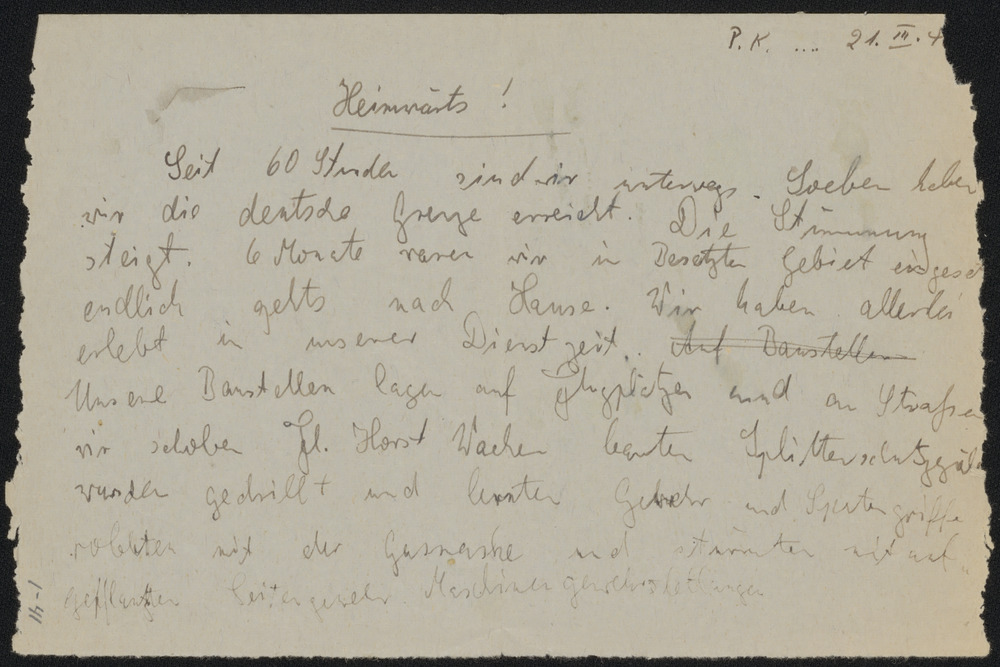 P.K. .... 21. III. 4
Heimwärts !
Seit 60 Stunden sind wir unterwegs. Soeben haben
wir die deutsche Grenze erreicht. Die Stimmung
steigt. 6 Monate waren wir in Besetzten Gebiet eingeset
endlich gehts nach Hause. Wir haben allerlei
erlebt in unserer Dienstzeit. Auf Baustellen
Unsere Baustellen lagen auf Flugplätzen und an Straßen
wir schoben Fl. Horst Wachen bauten Splitterschutz
wurden gedrillt und lernten Gewehr und Spatengriffe
robbten mit der Gasmaske und stürmten mit auf
gepflanzten Seitengewehr Maschinengewehrstellungen
1-41